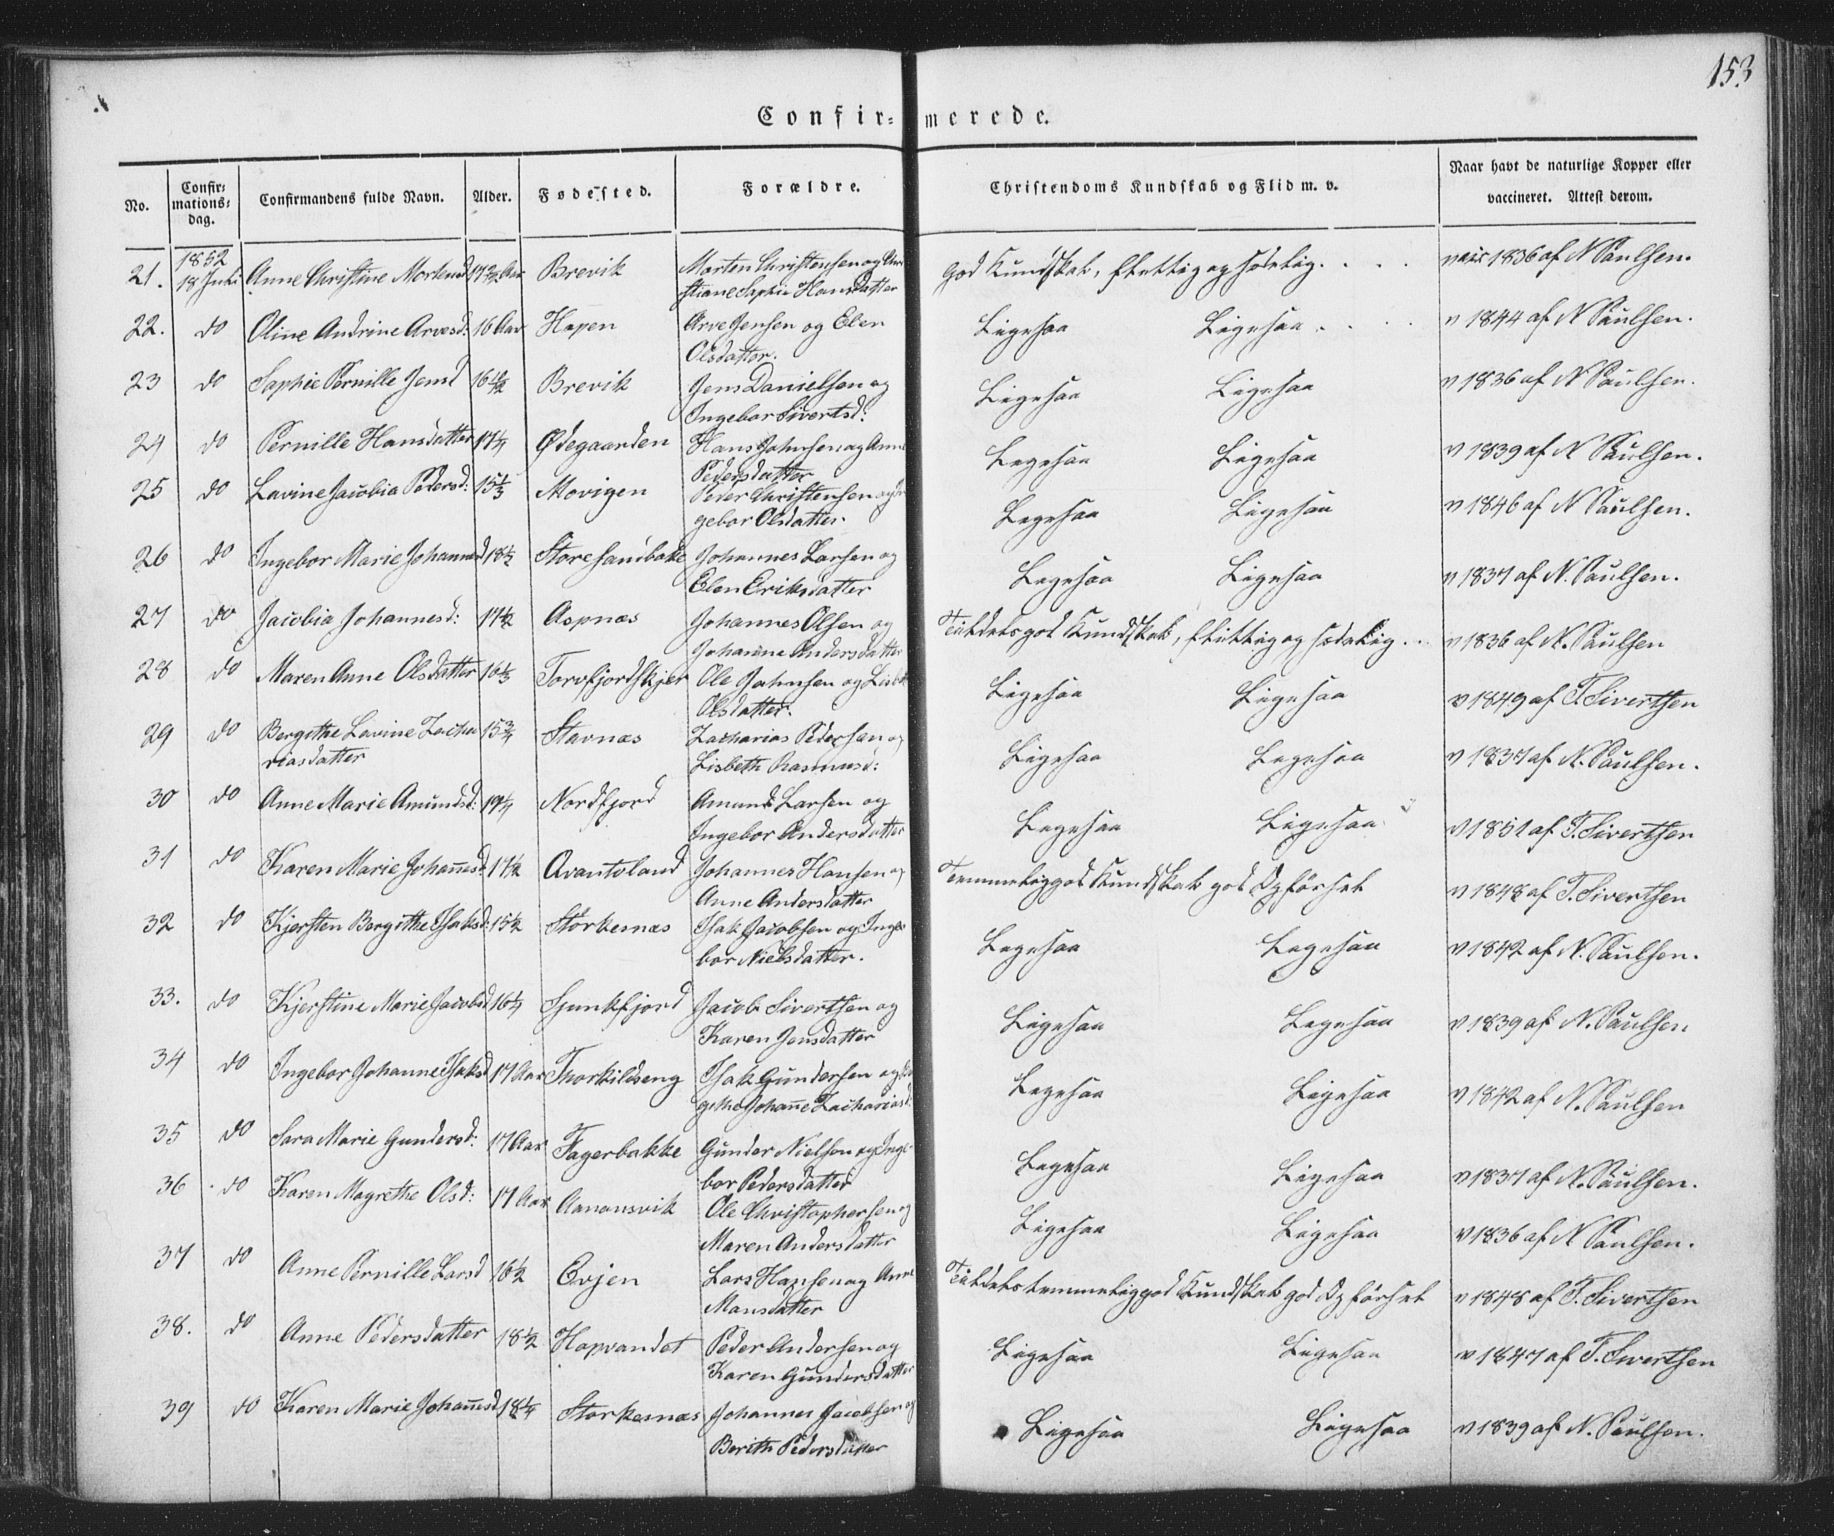 153
Confir= merede.
No. Confir= mations= dag. Confirmandens fulde Navn. Alder. Fødested. Forældre. Christendoms Kundskab og Flid m. v. Naar havt de naturlige Kopper eller vaccineret. Attest derom.
1852
21. 18 Juli Anne Christine Mortensd 17 Aar Brevik Morten Christensen og Chri= God Kundskab, flittig og sædelig. vacc 1836 af N Paulsen.
stiane Sophie Hansdatter
22. do Oline Andrine Arvesd: 16 Aar Hopen Arve Jensen og Elen Ligesaa Ligesaa v 1844 af N Paulsen.
Olsdatter.
23 do Sophie Pernille Jensd 16 1/2 Brevik Jens Danielsen og Ligesaa Ligesaa v 1836 af N Paulsen.
Ingebor Sivertsd:
24 do Pernille Hansdatter 17 1/4 Ødegaarden Hans Johnsen og Anne Ligesaa Ligesaa v 1839 af N Paulsen.
Pedersdatter
25 do Lavine Jacobia Pedersd: 15 1/3 Movigen Peder Christensen og In Ligesaa Ligesaa v 1846 af N Paulsen.
gebor Olsdatter
26 do Ingebor Marie Johannesd 18 1/2 Storesandbakke Johannes Larsen og Ligesaa Ligesaa v 1837 af N. Paulsen.
Elen Eriksdatter
27 do Jacobia Johannesd: 17 1/2 Aspnæs Johannes Olsen og Tildels god Kundskab, flittig og sædelig v 1836 af N. Paulsen
Johanna Andersdatter
28 do Maren Anne Olsdatter 16 1/3 Torvfjordskjer Ole Johnsen og Lisbet Ligesaa Ligesaa v 1849 af T. Sivertsen
Olsdatter.
29 do Bergithe Lavine Zacha 15 3/4 Stavnæs Zacharias Pedersen og Ligesaa Ligesaa v 1837 af N. Paulsen.
riasdatter Lisbeth Rasmusd:
30 do Anne Marie Amundsd: 19 1/4 Nordfjord Amund Larsen og Ligesaa Ligesaa v 1851 af T. Sivertsen
Ingebor Andersdatter
31 do Karen Marie Johan̄esd: 17 1/2 Qvantoland Johannes Hansen og Temmelig god Kundskab god Opførsel v 1848 af T. Sivertsen
Anne Andersdatter
32 do Kjersten Bergithe Isaksd: 15 1/2 Storkesnæs Isak Jacobsen og Inge= Ligesaa Ligesaa v 1842 af N. Paulsen.
bor Nielsdatter.
33. do Kjerstine Marie Jacobsd 16 1/4 Sjunkfjord Jacob Sivertsen og Ligesaa Ligesaa v 1839 af N. Paulsen
Karen Jensdatter
34 do Ingebor Johanne Isaksd 17 Aar Thorkildseng Isak Gundersen og Ber Ligesaa Ligesaa v 1842 af N. Paulsen
githe Johan̄e Zachariasd:
35 do Sara Marie Gundersd: 17 Aar Fagerbakke Gunder Nielsen og Inge= Ligesaa Ligesaa v 1837 af N. Paulsen.
bor Pedersdatter
36 do Karen Magrethe Olsd: 17 Aar Aanonsvik Ole Christophersen og Ligesaa Ligesaa v 1836 af N Paulsen.
Maren Andersdatter
37 do Anne Pernille Larsd 16 1/2 Evjen Lars Hansen og Anne Tildels temmelig god Kundskab god Opførsel v 1848 af T. Sivertsen
Mansdatter
38. do Anne Pedersdatter 18 1/2 Hopvandet Peder Andersen og Ligesaa Ligesaa v 1847 af T. Sivertsen
Karen Gundersdatter
39 do Karen Marie Johan̄esd 18 1/4 Storkesnæs Johannes Jacobsen og Ligesaa Ligesaa v 1839 af N. Paulsen.
Berith Pedersdatter